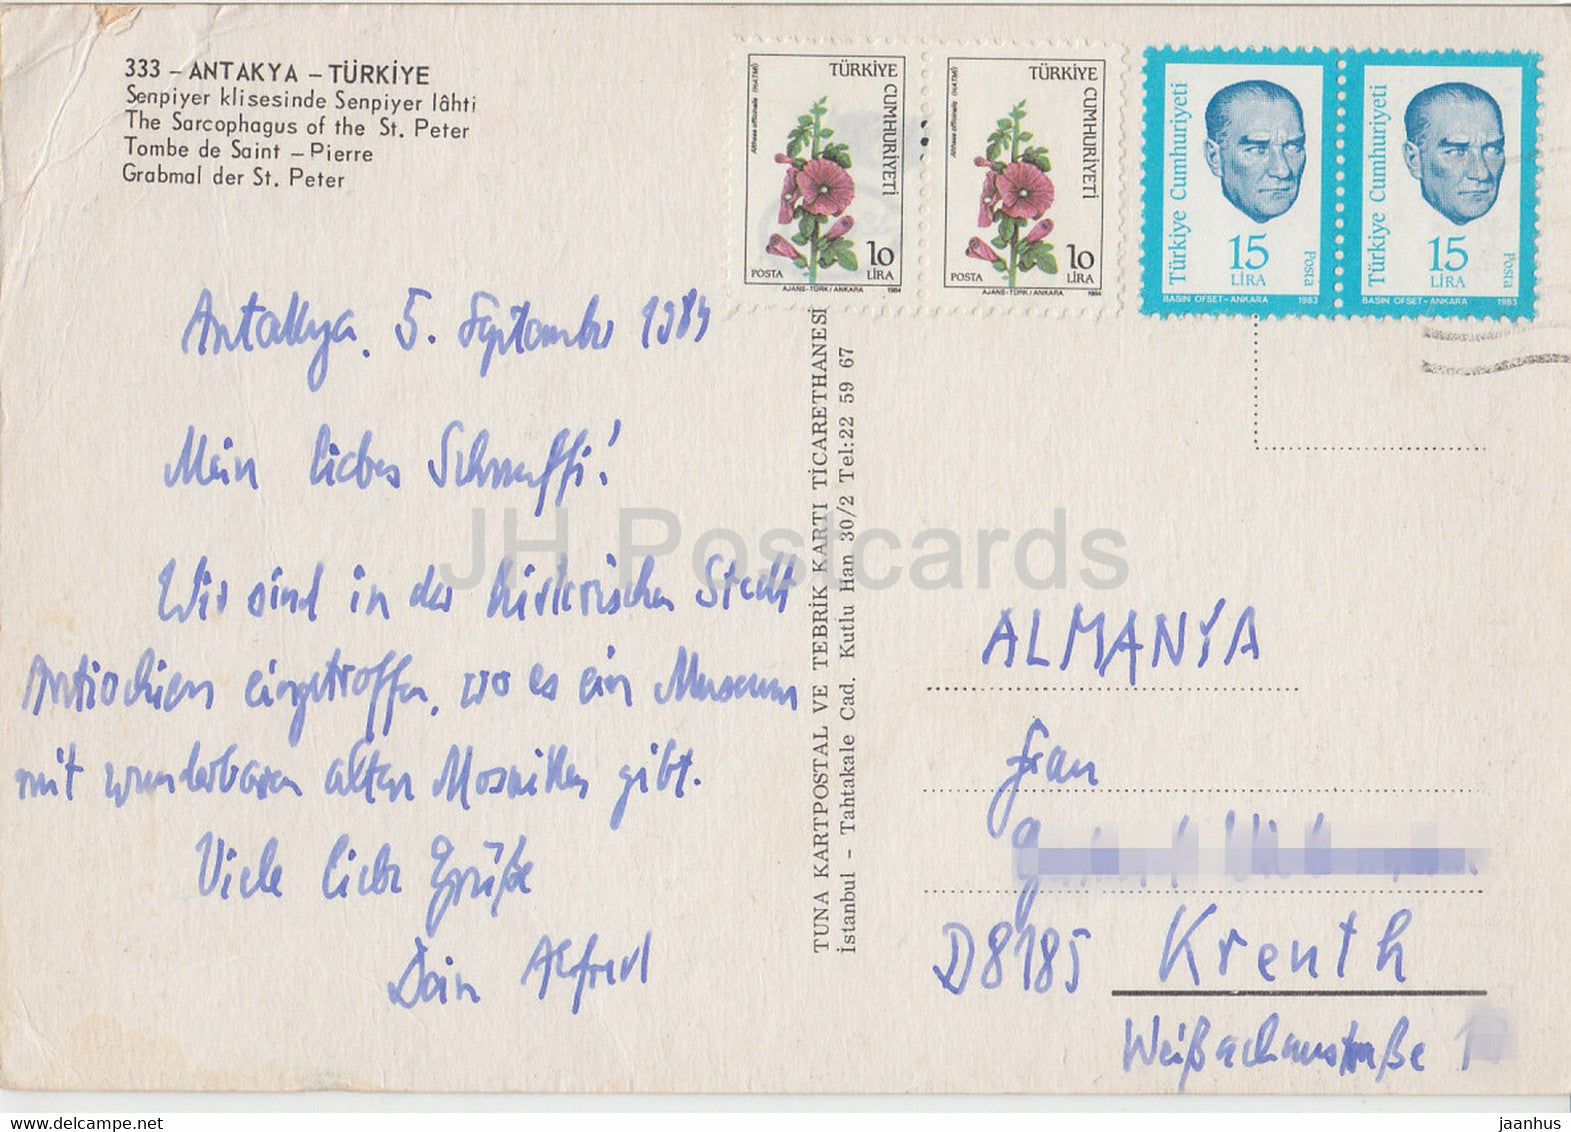 333 – ANTAKYA – TÜRKİYE
Senpiyer klisesinde Senpiyer lâhti
The Sarcophagus of the St. Peter
Tombe de Saint – Pierre
Grabmal der St. Peter
TÜRKİYE CUMHURİYETİ
Althaea officinalis (HATMİ)
POSTA
10
LİRA
AJANS-TÜRK / ANKARA 1984
TÜRKİYE CUMHURİYETİ
Althaea officinalis (HATMİ)
POSTA
10
LİRA
AJANS-TÜRK / ANKARA 1984
Türkiye Cumhuriyeti
15
LİRA
Posta
BASIN OFSET - ANKARA 1983
Türkiye Cumhuriyeti
15
LİRA
Posta
BASIN OFSET - ANKARA 1983
Antakya, 5. September 1984
Mein liebes Schnuffi!
Wir sind in der historischen Stadt
Antiochien eingetroffen, wo es ein Museum
mit wunderbaren alten Mosaiken gibt.
Viele liebe Grüße
Dein Alfred
TUNA KARTPOSTAL VE TEBRİK KARTI TİCARETHANESİ
İstanbul – Tahtakale Cad. Kutlu Han 30/2 Tel: 22 59 67
ALMANYA
Frau
D8185 Kreuth
Weißachaustraße
JH Postcards
www.delcampe.net
jaanhus